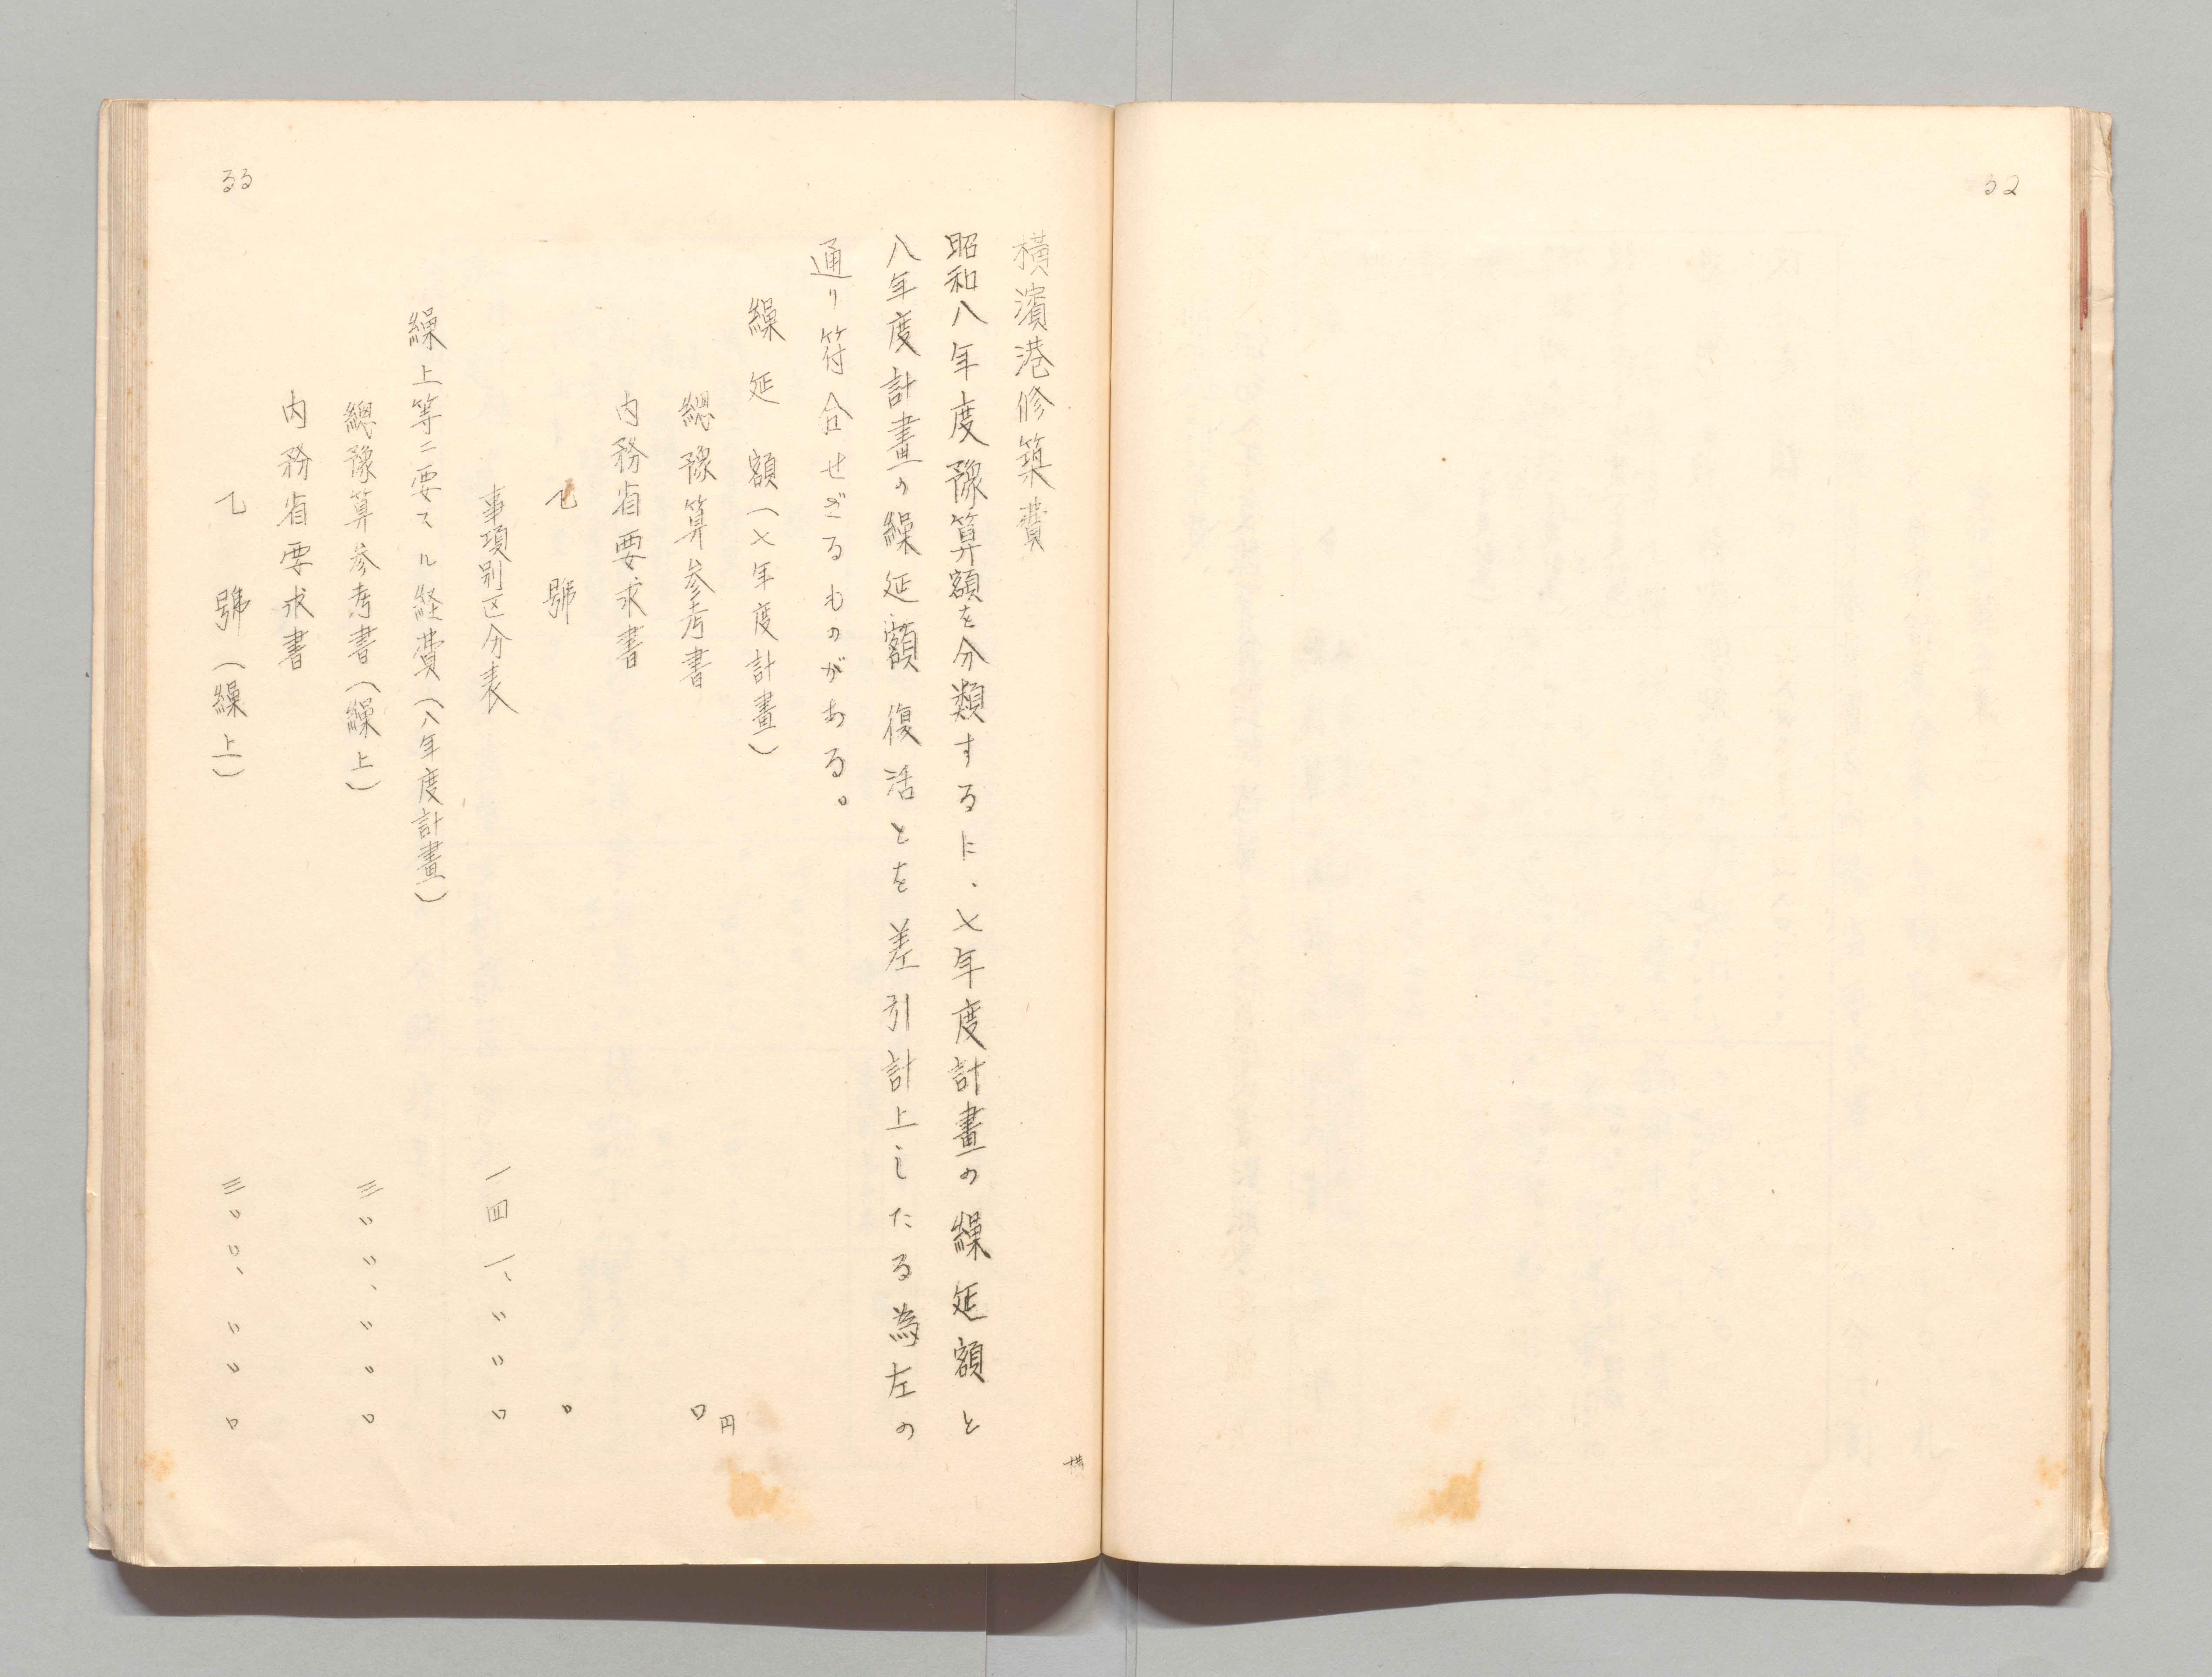 32
横濱港修築費
昭和八年度豫算額を分類するに、七年度計畫の繰延額と
八年度計畫の繰延額復活とを差引計上したる為左の
通り符合せざるものがある。
繰延額(七年度計畫)
円
總豫算参考書 〇
内務省要求書
乙號 〇
事項別区分表 一四一、〃〃〇
繰上等ニ要スル経費(八年度計畫)
總豫算参考書(繰上) 三〃〃、〃〃〇
内務省要求書
乙號(繰上) 三〃〇、〃〃〇
33
横